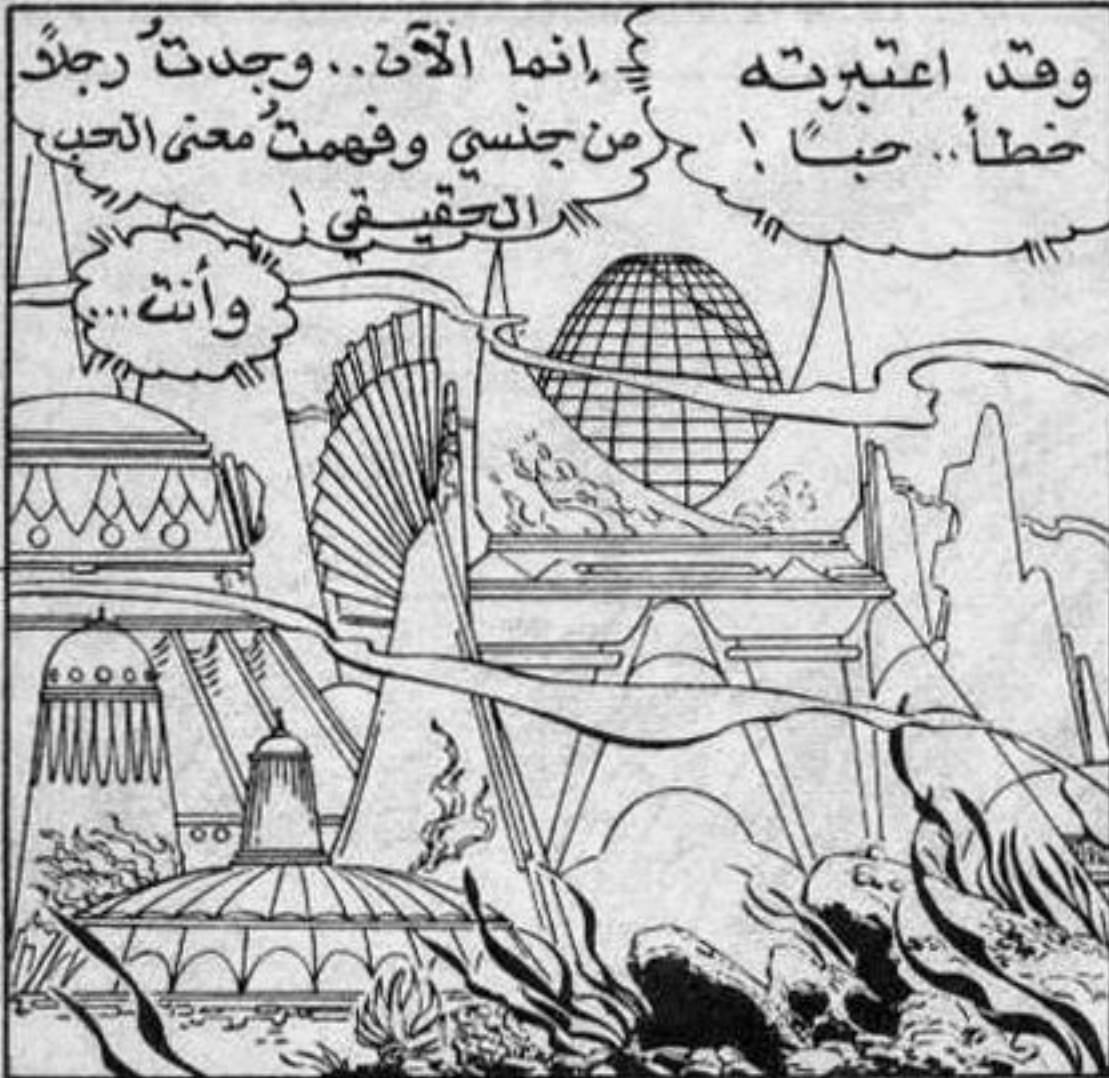 وقد اعتبرته
خطأ.. حبًا !
إنما الآن.. وجدتُ رجلاً
من جنسي وفهمتُ معنى الحب
الحقيقي !
وأنت...